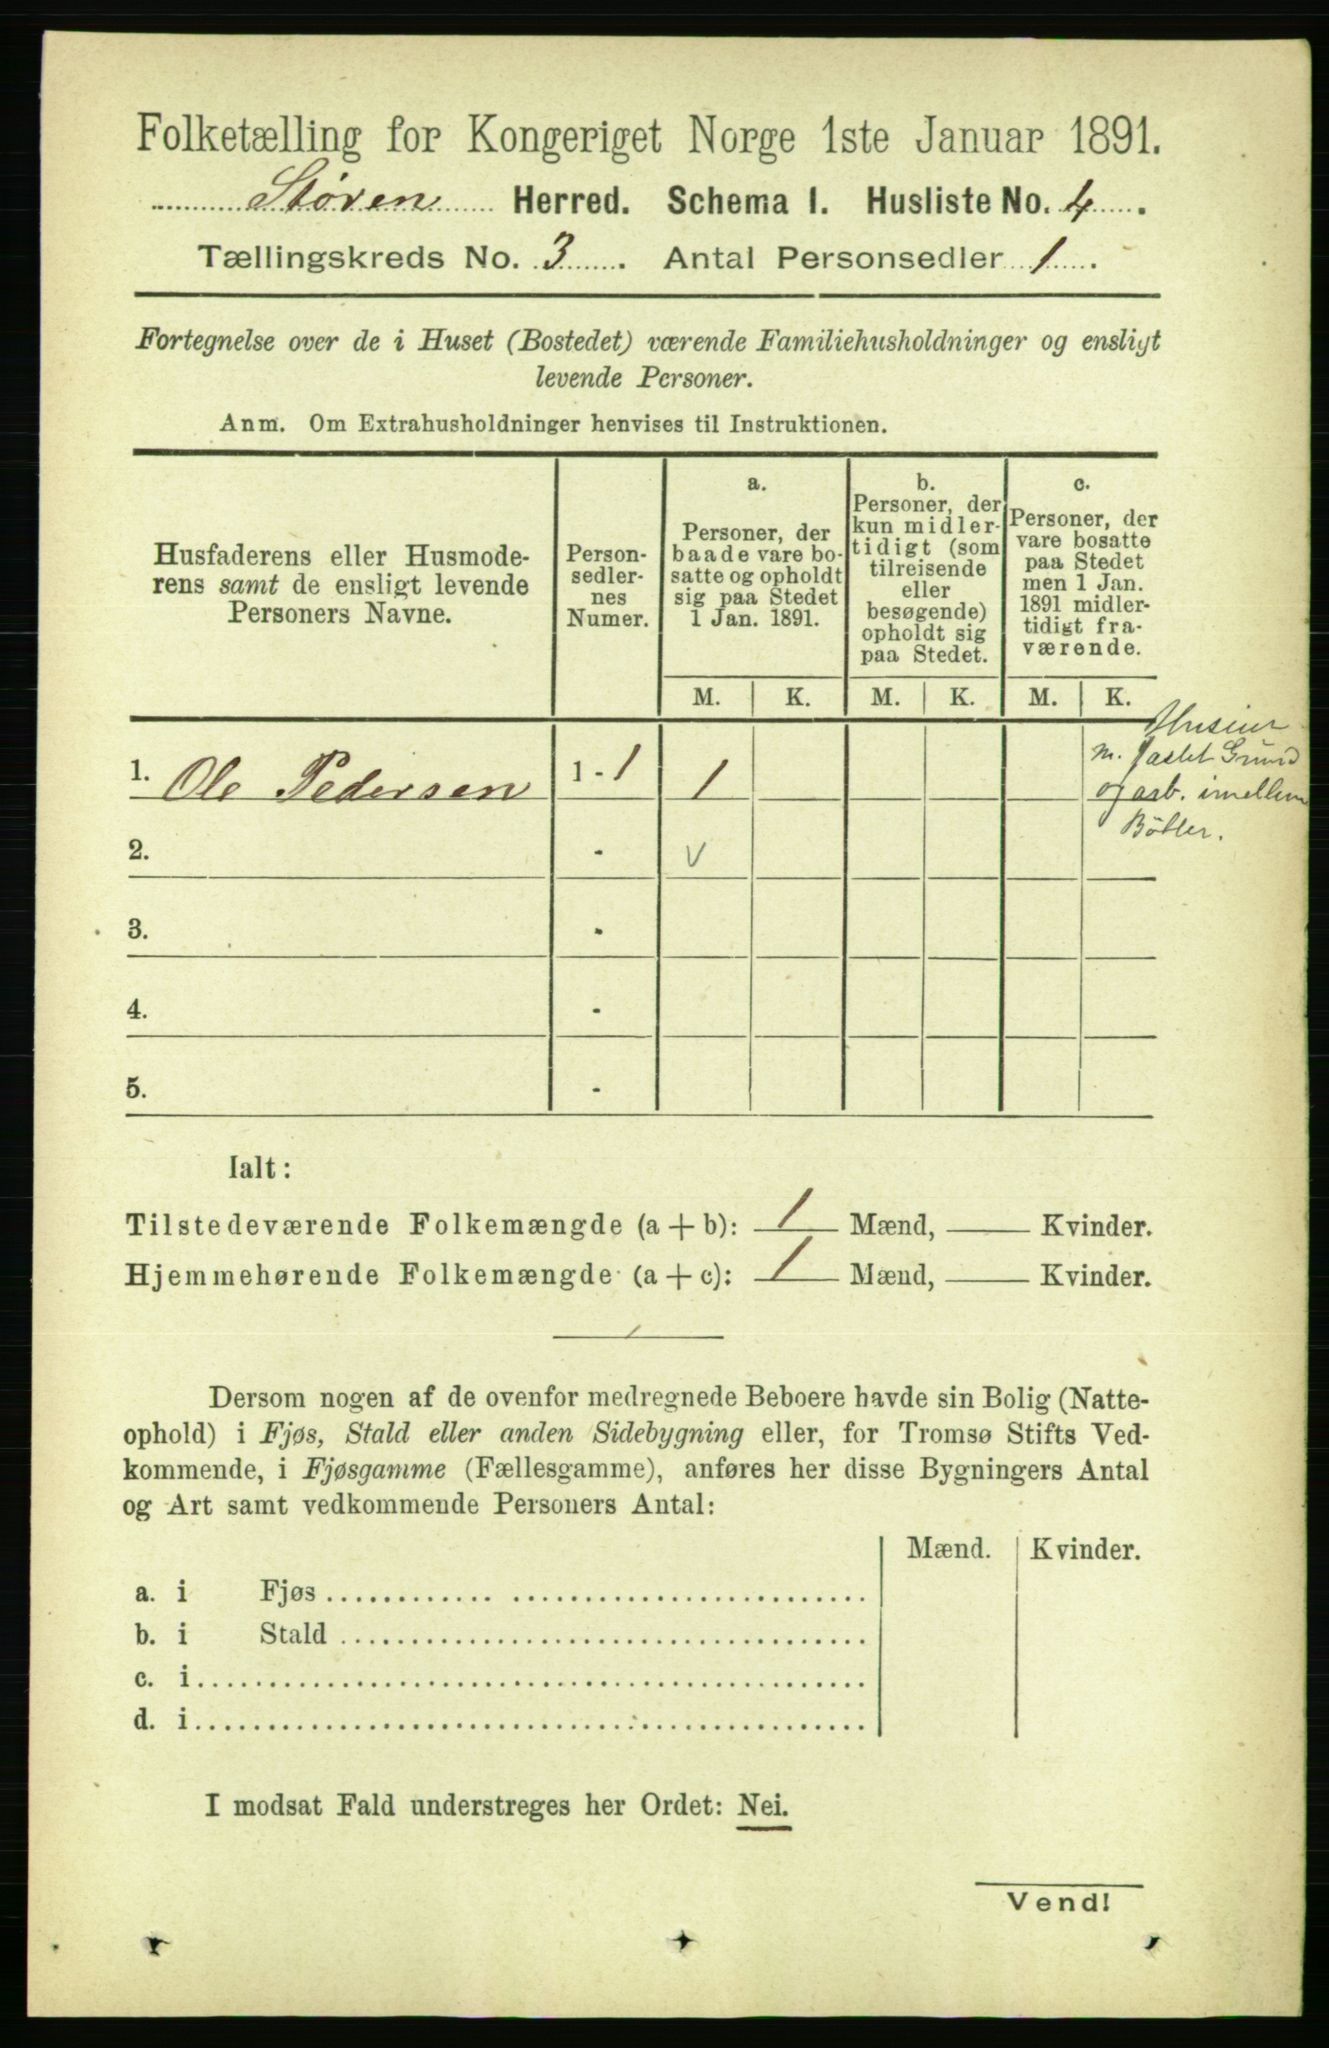 Folketælling for Kongeriget Norge 1ste Januar 1891.
Støren Herred. Schema I. Husliste No. 4.
Tællingskreds No. 3. Antal Personsedler 1.
Fortegnelse over de i Huset (Bostedet) værende Familiehusholdninger og ensligt
levende Personer.
Anm. Om Extrahusholdninger henvises til Instruktionen.
Husfaderens eller Husmode-
rens samt de ensligt levende
Personers Navne.
Person-
sedler-
nes
Numer.
a.
Personer, der
baade vare bo-
satte og opholdt
sig paa Stedet
1 Jan. 1891.
b.
Personer, der
kun midler-
tidigt (som
tilreisende
eller
besøgende)
opholdt sig
paa Stedet.
c.
Personer, der
vare bosatte
paa Stedet
men 1 Jan.
1891 midler-
tidigt fra-
værende.
M. K. M. K. M. K.
1. Ole Pedersen 1 - 1 1
m. fastet Grund
og arb. imellem
2. - v
3. -
4. -
5. -
Ialt:
Tilstedeværende Folkemængde (a + b): 1 Mænd, — Kvinder.
Hjemmehørende Folkemængde (a + c): 1 Mænd, — Kvinder.
Dersom nogen af de ovenfor medregnede Beboere havde sin Bolig (Natte-
ophold) i Fjøs, Stald eller anden Sidebygning eller, for Tromsø Stifts Ved-
kommende, i Fjøsgamme (Fællesgamme), anføres her disse Bygningers Antal
og Art samt vedkommende Personers Antal:
Mænd. Kvinder.
a. i Fjøs
b. i Stald
c. i
d. i
I modsat Fald understreges her Ordet: Nei.
Vend!